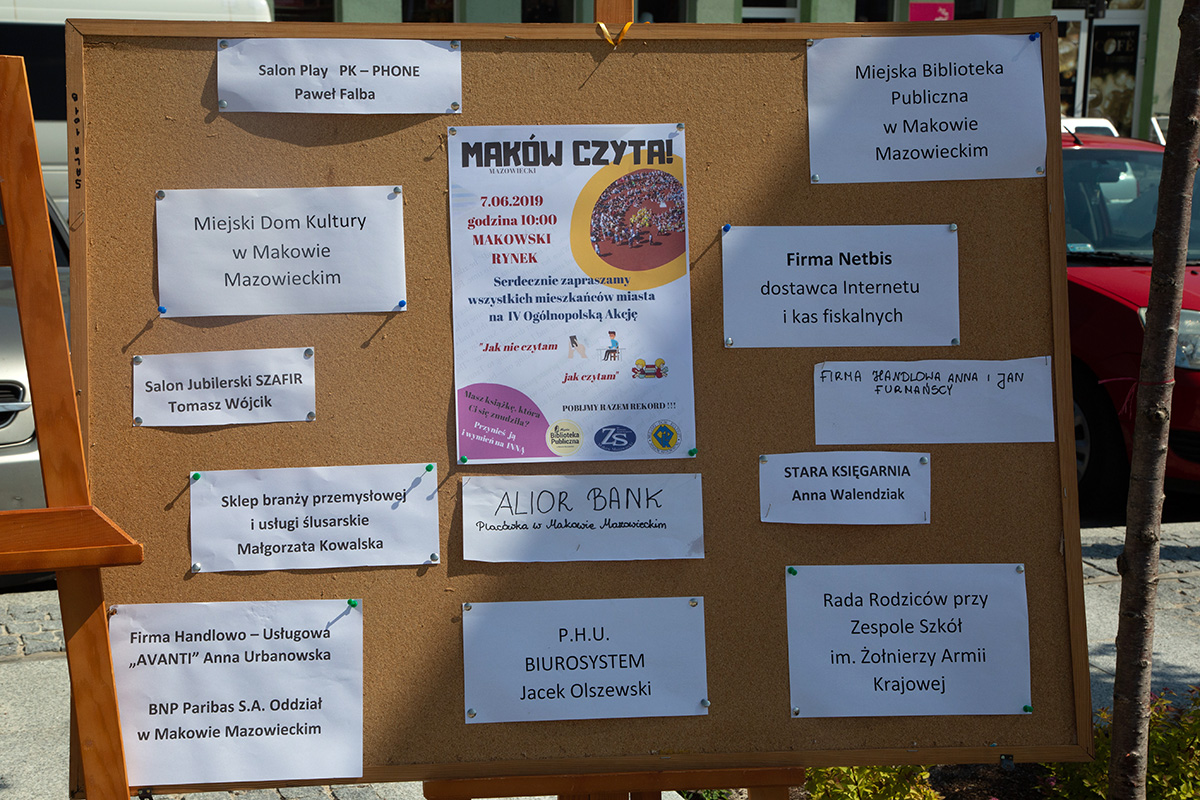 Salon Play PK – PHONE
Paweł Falba
Miejska Biblioteka
Publiczna
w Makowie
Mazowieckim
MAKÓW CZYTA!
MAZOWIECKI
7.06.2019
godzina 10:00
MAKOWSKI
RYNEK
Serdecznie zapraszamy
wszystkich mieszkańców miasta
na IV Ogólnopolską Akcję
"Jak nie czytam
jak czytam"
Masz książkę, która
Ci się znudziła?
Przynieś ją
i wymień na INNĄ
POBIJMY RAZEM REKORD !!!
Biblioteka
Publiczna
ZS
Miejski Dom Kultury
w Makowie
Mazowieckim
Firma Netbis
dostawca Internetu
i kas fiskalnych
Salon Jubilerski SZAFIR
Tomasz Wójcik
FIRMA HANDLOWA ANNA I JAN
FURMAŃSCY
Sklep branży przemysłowej
i usługi ślusarskie
Małgorzata Kowalska
ALIOR BANK
Placówka w Makowie Mazowieckim
STARA KSIĘGARNIA
Anna Walendziak
Firma Handlowo – Usługowa
„AVANTI” Anna Urbanowska
BNP Paribas S.A. Oddział
w Makowie Mazowieckim
P.H.U.
BIUROSYSTEM
Jacek Olszewski
Rada Rodziców przy
Zespole Szkół
im. Żołnierzy Armii
Krajowej